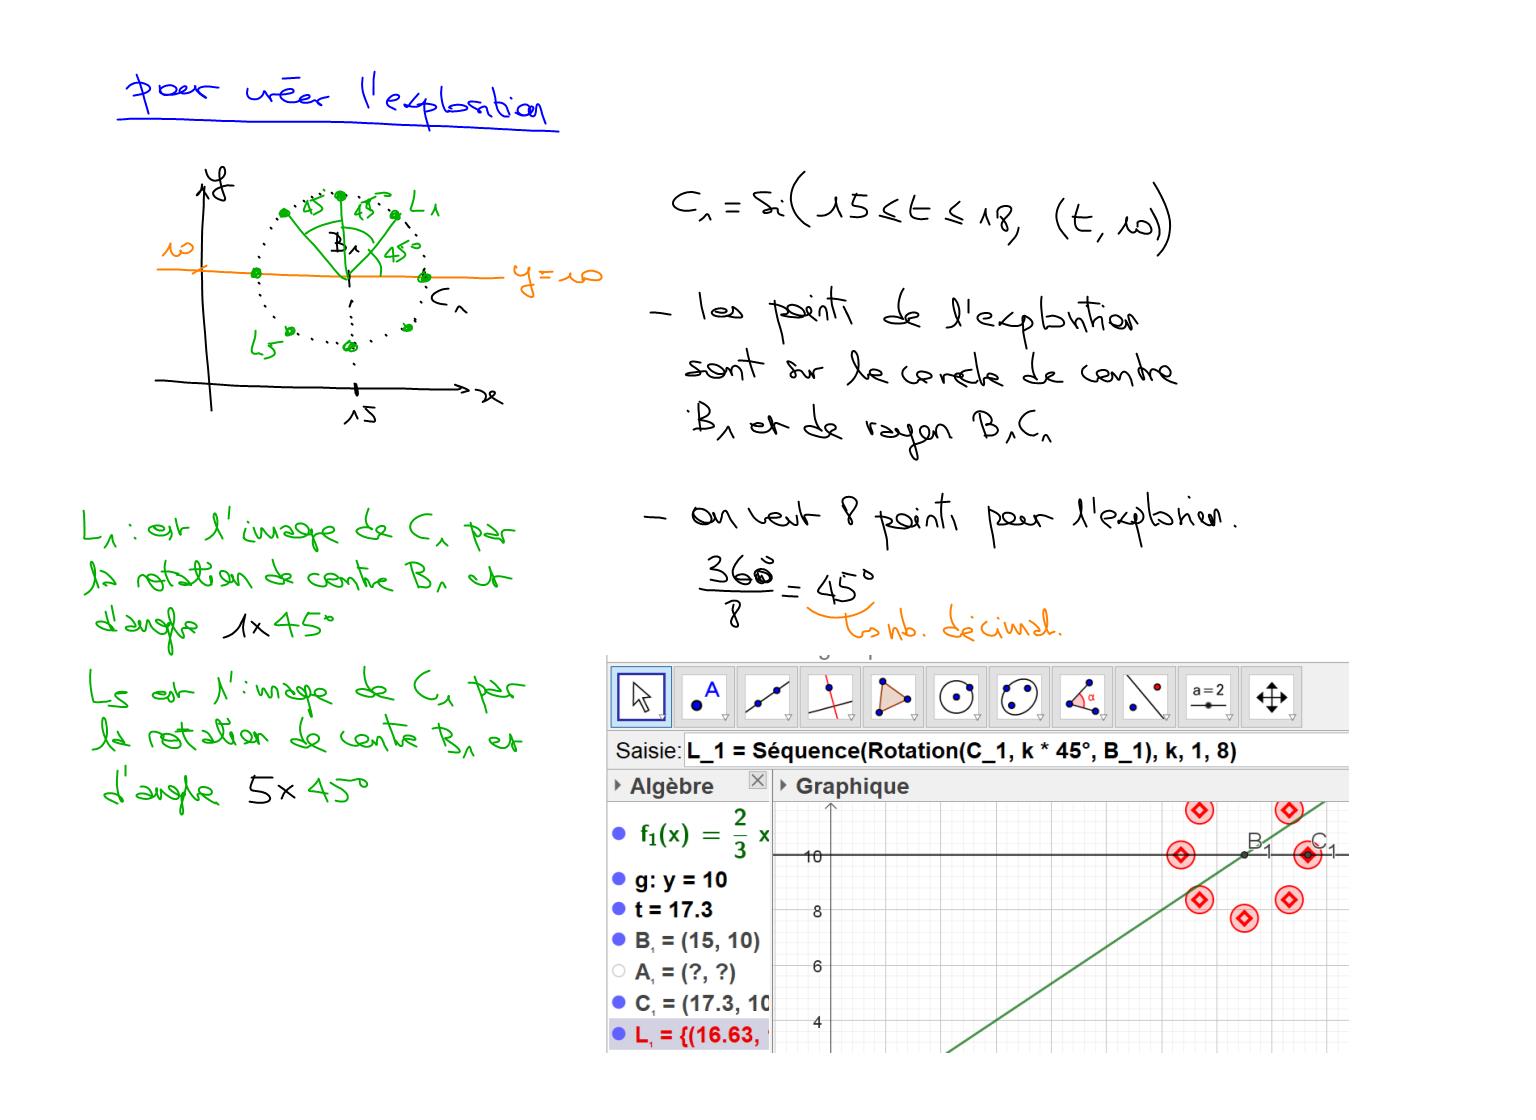 pour créer l'explosition
y
45° 45° L1
B1 45°
10
y = 10
C1
L5
x
15
C1 = Si(15 ≤ t ≤ 18, (t, 10))
- les points de l'explosition
sont sur le cercle de centre
B1 et de rayon B1C1
- on veut 8 points pour l'explosion.
360°/8 = 45°
↳ nb. décimal.
L1 : est l'image de C1 par
la rotation de centre B1 et
d'angle 1x45°
L5 est l'image de C1 par
la rotation de centre B1 et
d'angle 5x45°
A
α
a = 2
Saisie: L_1 = Séquence(Rotation(C_1, k * 45°, B_1), k, 1, 8)
Algèbre
Graphique
f₁(x) = 2/3 x
g: y = 10
t = 17.3
B₁ = (15, 10)
A₁ = (?, ?)
C₁ = (17.3, 10
L₁ = {(16.63,
B₁
C₁
10
8
6
4